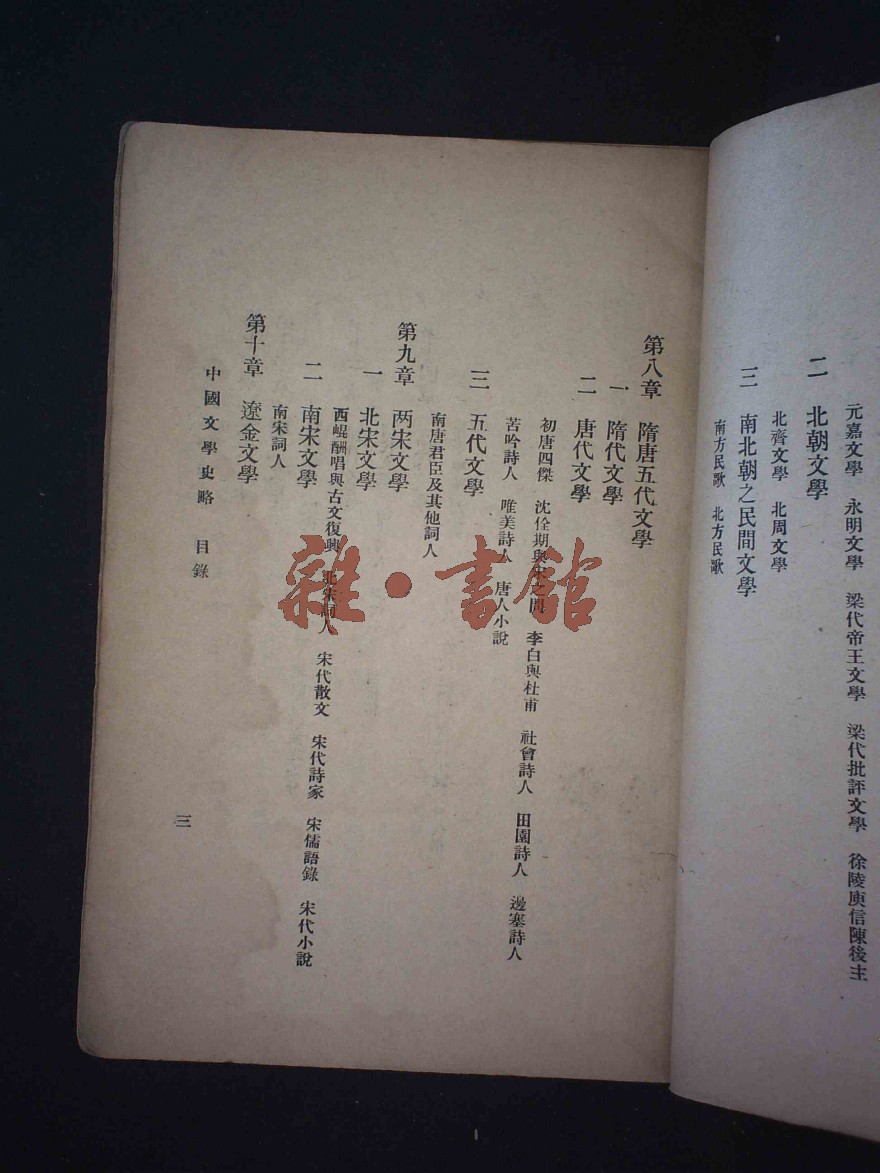 元嘉文學　永明文學　梁代帝王文學　梁代批評文學　徐陵庾信陳後主
二　北朝文學
北齊文學　北周文學
三　南北朝之民間文學
南方民歌　北方民歌
第八章　隋唐五代文學
一　隋代文學
二　唐代文學
初唐四傑　沈佺期與宋之問　李白與杜甫　社會詩人　田園詩人　邊塞詩人
苦吟詩人　唯美詩人　唐人小說
三　五代文學
南唐君臣及其他詞人
第九章　两宋文學
一　北宋文學
西崐酬唱與古文復興　北宋詞人　宋代散文　宋代詩家　宋儒語錄　宋代小說
二　南宋文學
南宋詞人
第十章　遼金文學
中國文學史略　目錄
三
雜·書館